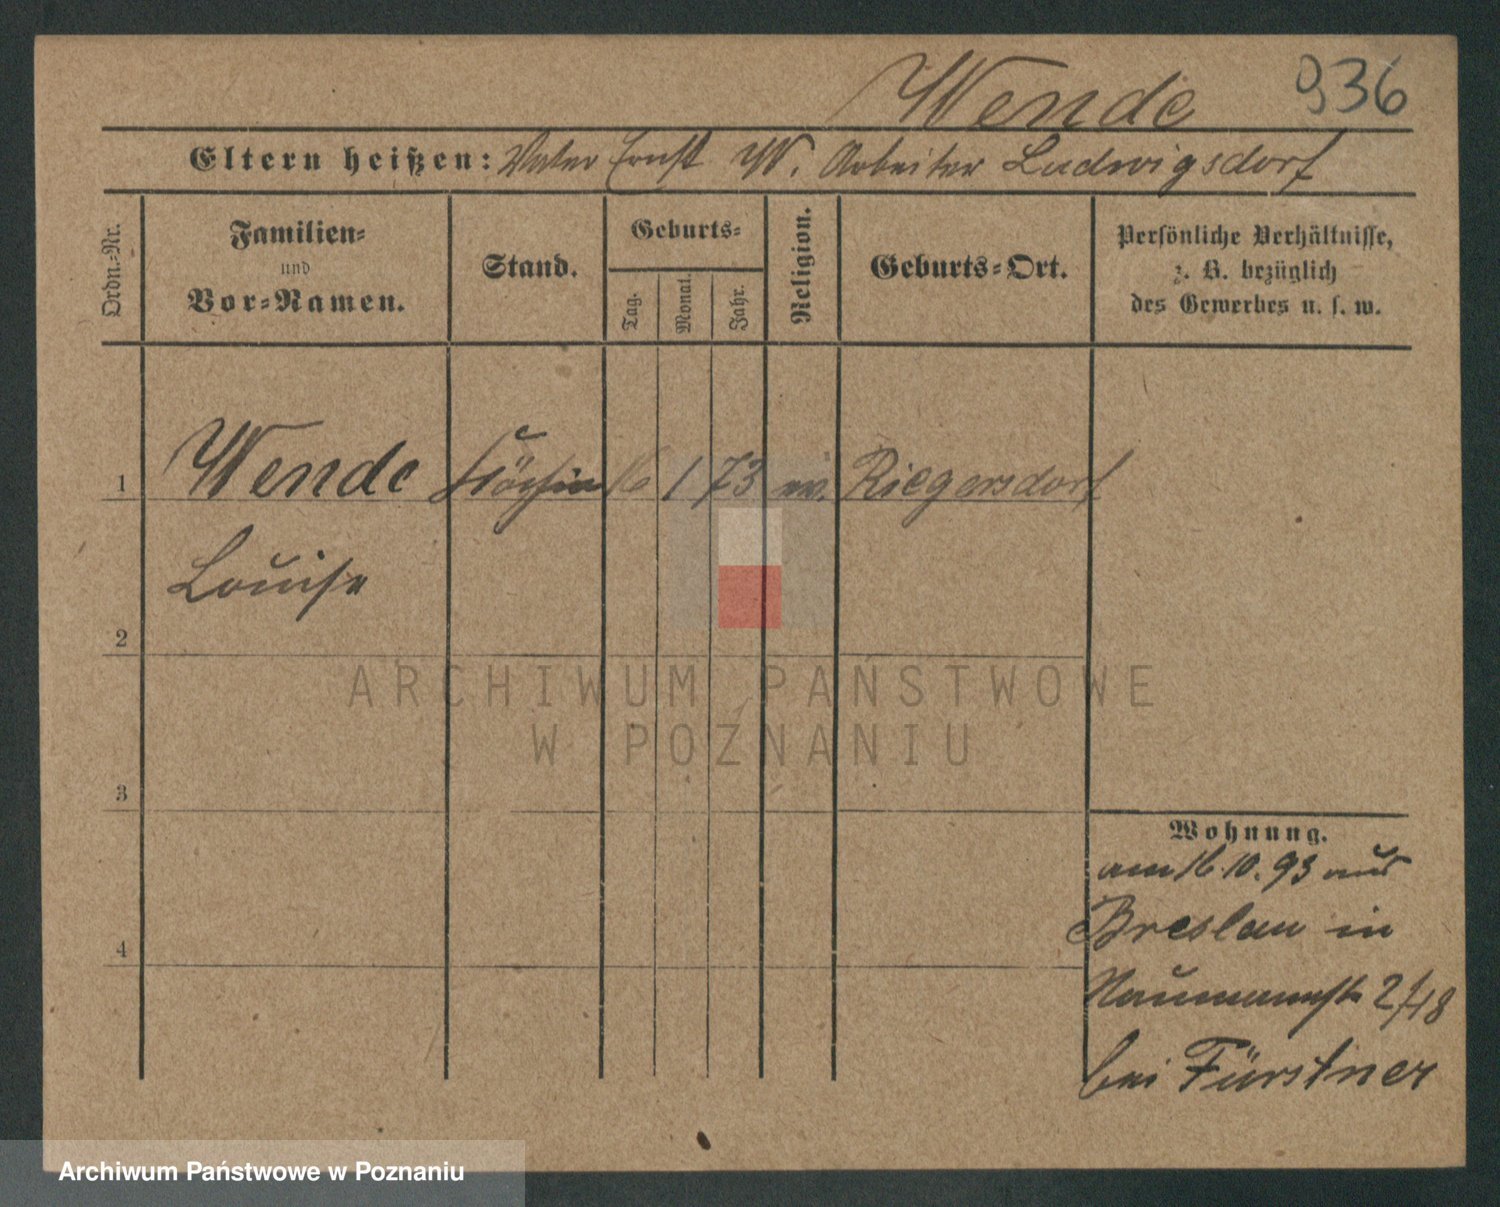 Wende 936
Eltern heißen: Vater Ernst W. Arbeiter Ludwigsdorf
Ordn.-Nr.
Familien-
und
Vor-Namen.
Stand.
Geburts-
Tag.
Monat.
Jahr.
Religion.
Geburts-Ort.
Persönliche Verhältnisse,
z. B. bezüglich
des Gewerbes u. s. w.
1 Wende Köchin 16 1 73 ev. Riegersdorf
Louise
2
3
4
Wohnung.
am 16.10.93 aus
Breslau in
Naumannstr 2/48
bei Fürstner
ARCHIWUM PAŃSTWOWE
W POZNANIU
Archiwum Państwowe w Poznaniu